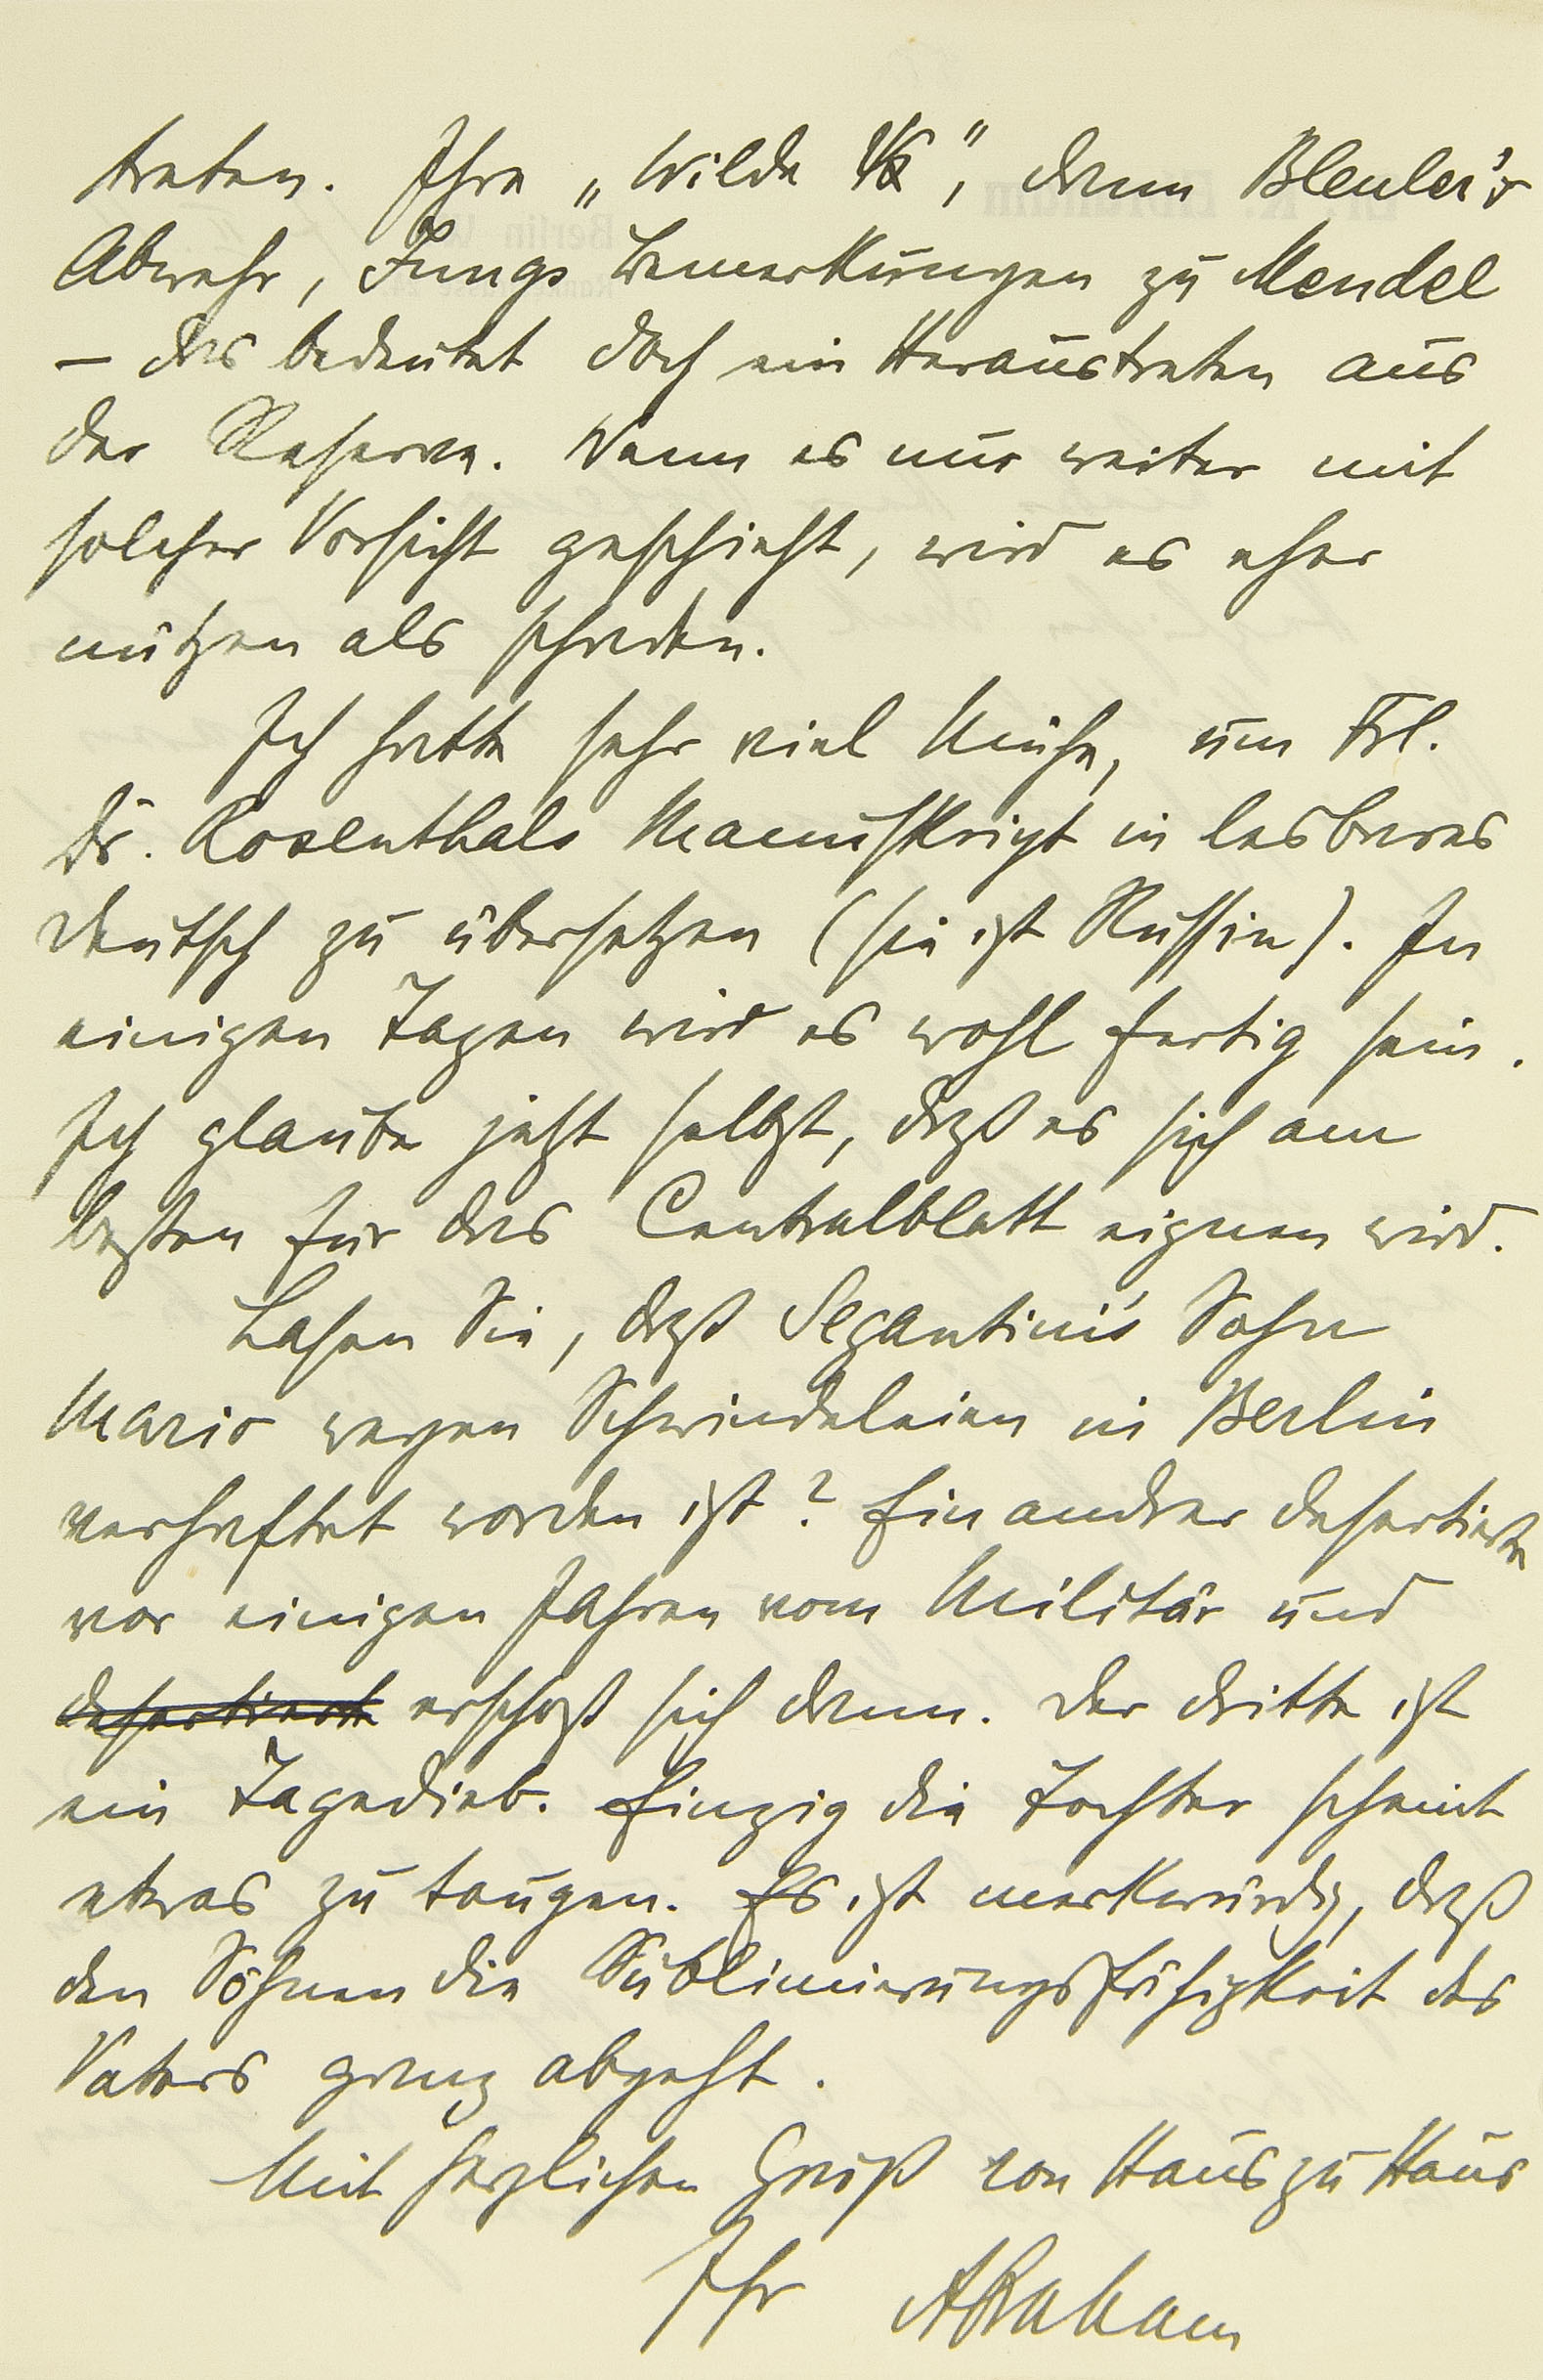 treten. Ihre „Wilde ΨΑ“, dann Bleuler's
Abwehr, Jungs Bemerkungen zu Mendel
– das bedeutet doch ein Heraustreten aus
der Reserve. Wenn es nur weiter mit
solcher Vorsicht geschieht, wird es eher
nützen als schaden.
Ich hatte sehr viel Mühe, um Frl.
Dr. Rosenthals Manuskript in lesbares
Deutsch zu übersetzen (sie ist Russin). In
einigen Tagen wird es wohl fertig sein.
Ich glaube jetzt selbst, daß es sich am
besten für das Centralblatt eignen wird.
Lasen Sie, daß Segantini's Sohn
Mario wegen Schwindeleien in Berlin
verhaftet worden ist? Ein andrer desertierte
vor einigen Jahren vom Militär und
desertierte erschoß sich dann. Der dritte ist
ein Tagedieb. Einzig die Tochter scheint
etwas zu taugen. Es ist merkwürdig, daß
den Söhnen die Sublimierungsfähigkeit des
Vaters ganz abgeht.
Mit herzlichen Gruß von Haus zu Haus
Ihr Abraham